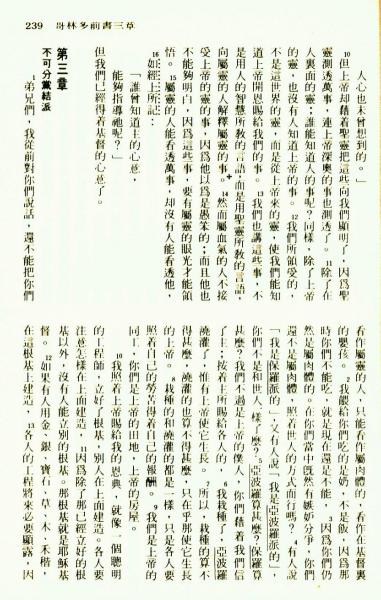 239 哥林多前書三章
人心也未曾想到的。」
10但上帝却藉着聖靈把這些向我們顯明了，因爲聖
靈測透萬事，連上帝深奧的事也測透了。11除了在
人裏面的靈，誰能知道人的事呢？同樣，除了上帝
的靈，也沒有人知道上帝的事。12我們所領受的，
不是這世界的靈，而是從上帝來的靈，使我們能知
道上帝開恩賜給我們的事。13我們也講這些事，不
是用人的智慧所教的言語，而是用聖靈所教的言語，
向屬靈的人解釋屬靈的事。14然而屬血氣的人不接
受上帝的靈的事，因爲他以爲是愚笨的；而且他也
不能夠明白，因爲這些事，要有屬靈的眼光才能領
悟。15屬靈的人能看透萬事，却沒有人能看透他，
16如經上所記：
「誰曾知道主的心意，
能夠指導祂呢？」
但我們已經得着基督的心意了。
第三章
不可分黨結派
1弟兄們，我從前對你們說話，還不能把你們
看作屬靈的人，只能看作屬肉體的，看作在基督裏
的嬰孩。2我餵給你們吃的是奶，不是飯，因爲那
時你們不能吃，就是現在還是不能，3因爲你們仍
然是屬肉體的。在你們當中旣然有嫉妒紛爭，你們
還不是屬肉體，照着世人的方式而行嗎？4有人說
「我是保羅派的」，又有人說「我是亞波羅派的」，
你們不是和世人一樣了麼？5亞波羅算甚麼？保羅算
甚麼？我們不過是上帝的僕人，你們藉着我們信
了主；按着主所賜給各人的，6我栽種了，亞波羅
澆灌了，惟有上帝使它生長。7所以，栽種的算不
得甚麼，澆灌的也算不得甚麼，只在乎那使它生長
的上帝。8栽種的和澆灌的都是一樣，只是各人要
照着自己的勞苦得着自己的報酬。9我們是上帝的
同工，你們是上帝的田地，上帝的房屋。
10我照着上帝賜給我的恩典，就像一個聰明
的工程師，立好了根基，別人在上面建造。各人要
注意怎樣在上面建造，11因爲除了那已經立好的根
基以外，沒有人能立別的根基。那根基就是耶穌基
督。12如果有人用金、銀、寶石、草、木、禾稭，
在這根基上建造，13各人的工程將來必要顯露，因